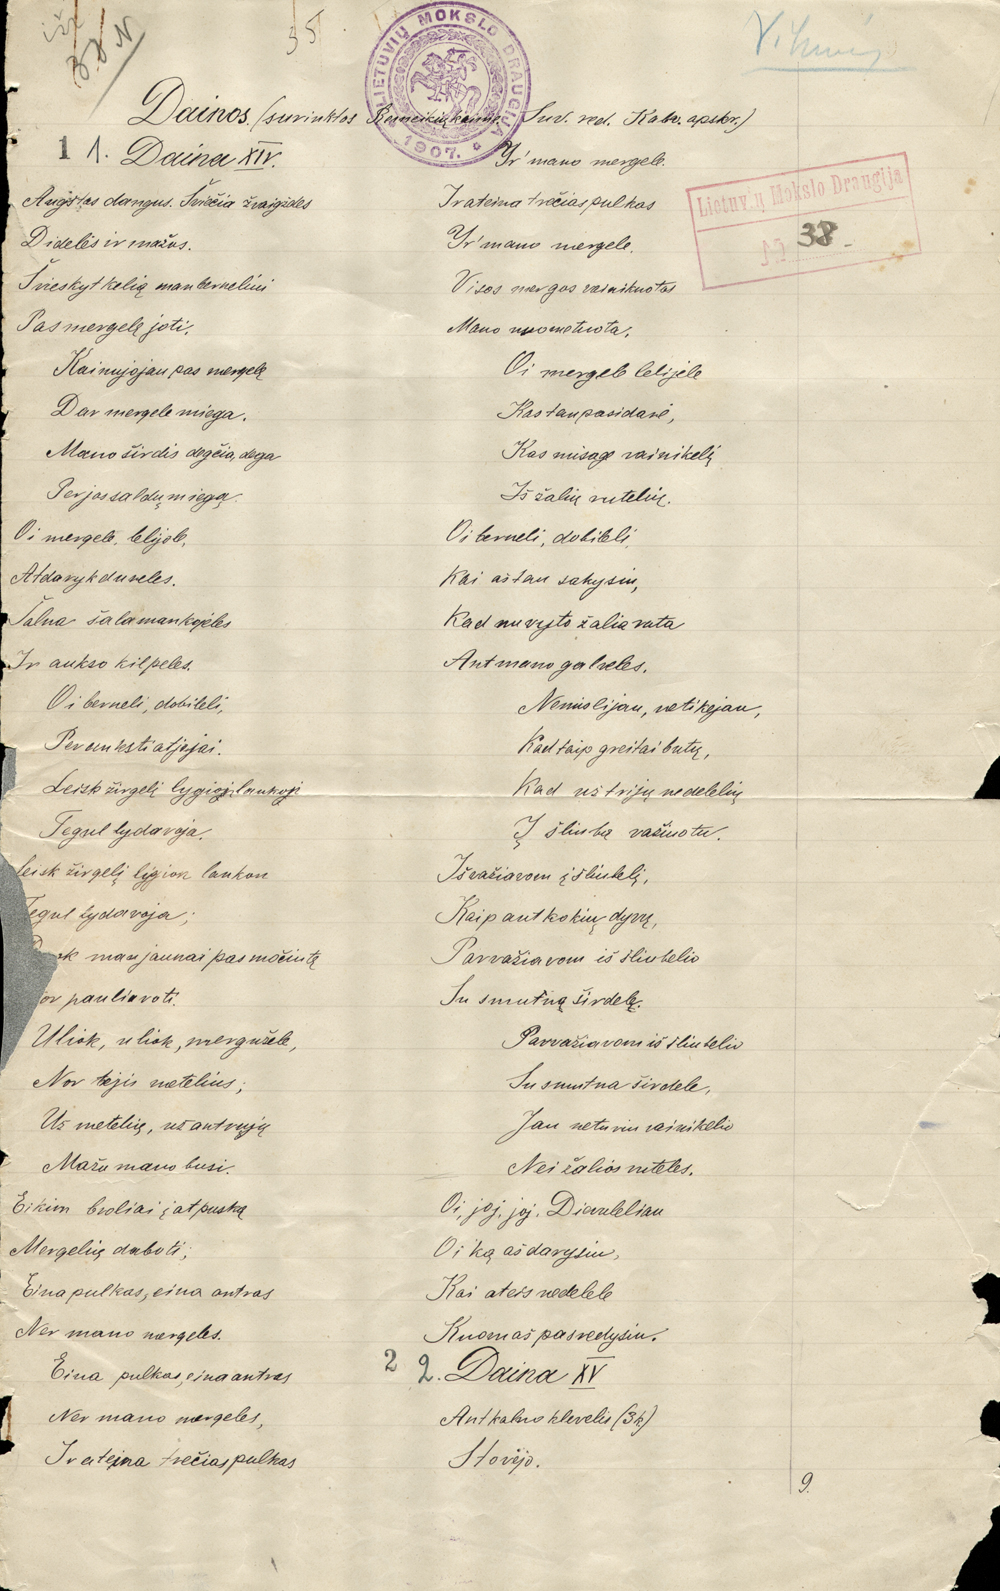 55.
38 N
Vilnius
LIETUVIŲ MOKSLO DRAUGIJA
1907.
Lietuvių Mokslo Draugija
38
Dainos. (surinktos Suv. red. Kalv. apskr.)
1 1. Daina XIV.
Augštas dangus. Šviečia žvaigždes
Didelės ir mažos.
Švieskyt kelią man berneliui
Pas mergelę joti.
Kai nujojau pas mergelę
Dar mergele miega.
Mano širdis degčia dega
Per jos saldų miegą.
Oi mergele, lelijele,
Atdaryk dureles.
Šalna šala man kojeles
Ir aukso kilpeles.
Oi berneli, dobileli,
Per anksti atjojai.
Leisk žirgelį lygiojį laukoji
Tegul lydavoja.
Leisk žirgelį lygion laukon
Tegul lydavoja;
man jaunai pas močiutę
Nor pauliavoti.
Uliok, uliok, mergužele,
Nor tėjis metelius;
Už metelių, už antrųjų
Mažu mano busi.
Eikim broliai į atpuską
Mergelių daboti;
Eina pulkas, eina antras
Ner mano mergeles.
Eina pulkas, eina antras
Ner mano mergeles,
Ir ateina trečias pulkas
Yr' mano mergele.
Ir ateina trečias pulkas
Yr' mano mergele.
Visos mergos vainikuotos
Mano nuometuota.
Oi mergele lelijele
Kas tau pasidarė,
Kas nusagė vainikelį
Iš žalių rutelių.
Oi berneli, dobileli,
Kai aš tau sakysiu,
Kad nuvyto žalia ruta
Ant mano galveles.
Nemislijau, netikejau,
Kad taip greitai butų,
Kad už trijų nedelelių
Į šliubą važiuotu.
Išvažiavom į šliubelį,
Kaip ant kokių dyvų,
Parvažiavom iš šliubelio
Su smutną širdelę.
Parvažiavom iš šliubelio
Su smutna širdele,
Jau neturiu vainikelio
Nei žalios ruteles.
Oi, joj, joj, Dievuleliau
Oi ką aš darysiu,
Kai ateis nedelele
Kuom aš pasredysiu.
2 2. Daina XV
Ant kalno klevelis (3k)
Stovėjo.
9.